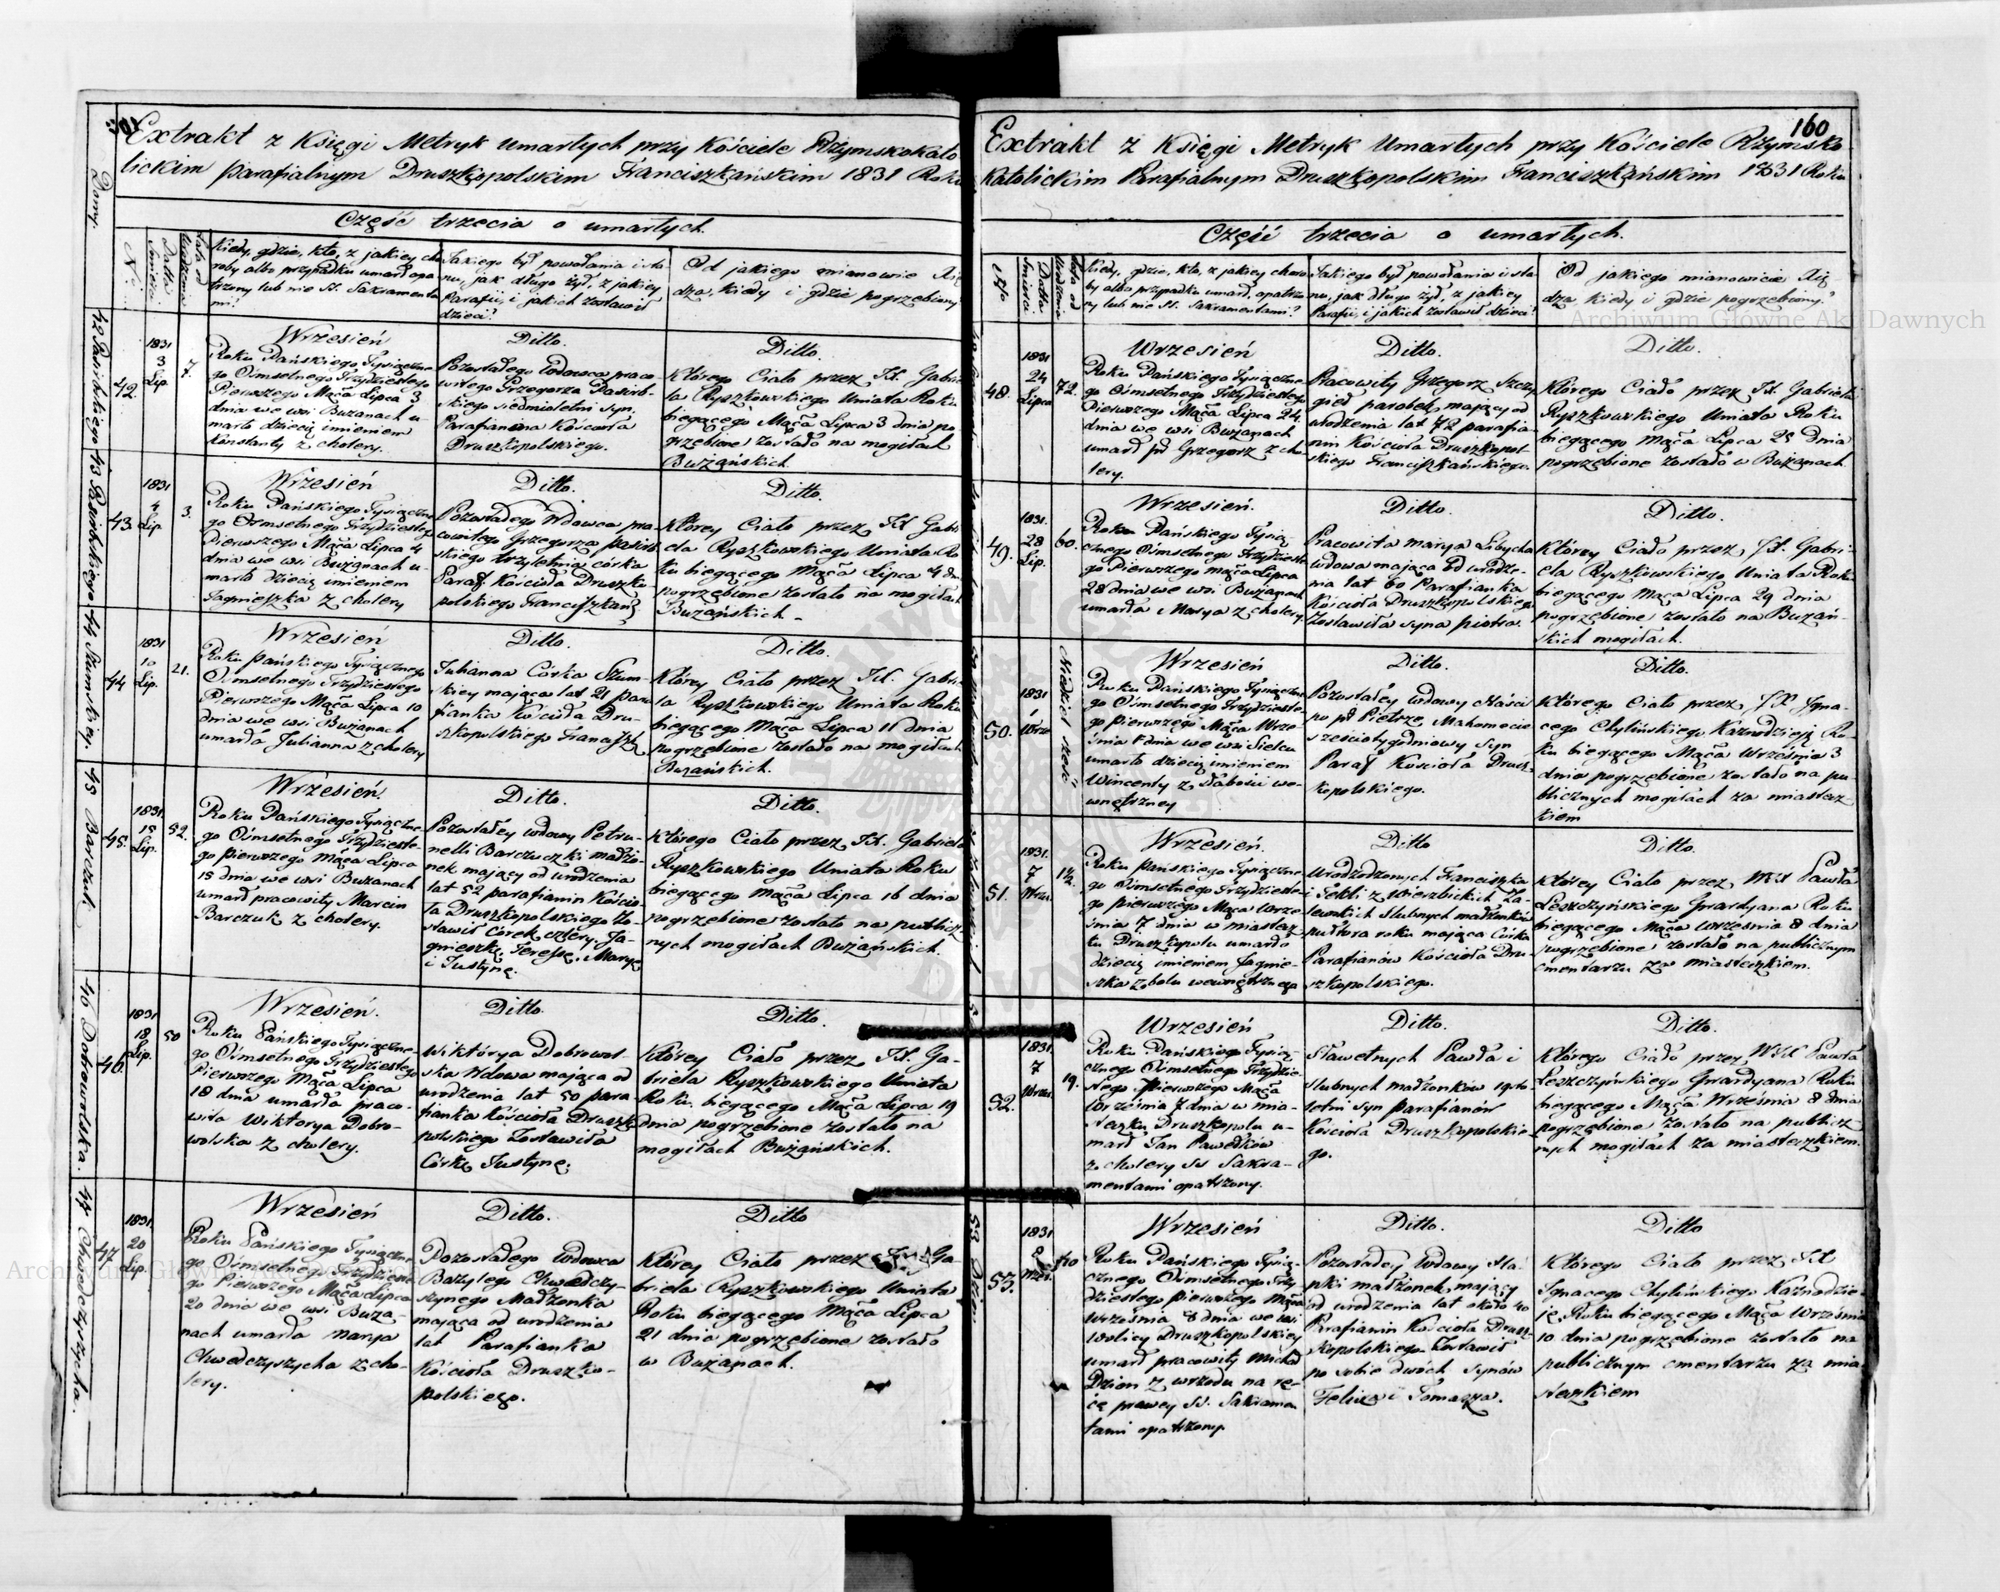 Extrakt z Księgi Metryk umarłych przy Kościele Rzymskokato
lickim parafialnym Druszkopolskim Franciszkańskim 1831 Roku
Część trzecia o umarłych.
Nr.
Datta Śmierci
Lata od Urodzenia
Kiedy, gdzie, kto, z jakiey cho
roby albo przypadku umarł opa
trzony lub nie SS. Sakramenta
mi?
Jakiego był powołania i sta
nu, jak długo żył, z jakiey
Parafii, i jakich zostawił
dzieci?
Od jakiego mianowicie Xię
dza, kiedy i gdzie pogrzebiony
42 Pasirbskiego
42.
1831
3
Lip.
7.
Wrzesień
Roku Pańskiego Tysiączne
go Ośmsetnego Trzydziestego
Pierwszego Mąca Lipca 3
dnia we wsi Bużanach u-
marło dziecię imieniem
Konstanty z cholery.
Ditto.
Pozostałego Wdowca praco
witego Grzegorza Pasirb-
skiego siedmioletni syn,
Parafianina Kościoła
Druszkopolskiego.
Ditto.
Którego Ciało przez JX. Gabrie
la Ryszkowskiego Uniata Roku
biegącego Mąca Lipca 3 dnia po
grzebione zostało na mogiłach
Bużańskich.
43 Pasirbskiego
43.
1831
4
Lip.
3.
Wrzesień
Roku Pańskiego Tysiączne
go Ośmsetnego Trzydziestego
Pierwszego Mąca Lipca 4
dnia we wsi Bużanach u-
marło dziecię imieniem
Jagnieszka z cholery
Ditto.
Pozostałego Wdowca pra
cowitego Grzegorza Pasirb
skiego trzyletnia córka
Paraf. Kościoła Druszko-
polskiego Franciszkań
Ditto.
Którey Ciało przez JX Gabri
ela Ryszkowskiego Uniata Ro
ku biegącego Mąca Lipca 4 dn
pogrzebione zostało na mogiłach
Bużańskich -
44 Szumskiey.
44
1831
10
Lip.
21.
Wrzesień
Roku Pańskiego Tysiącznego
Ośmsetnego Trzydziestego
Pierwszego Mąca Lipca 10
dnia we wsi Bużanach
umarła Julianna z cholery
Ditto.
Julianna Córka Szum-
skiey mająca lat 21 para
fianka Kościoła Dru-
szkopolskiego Franciszk
Ditto.
Którey Ciało przez JX. Gabrie
la Ryszkowskiego Uniata Roku
biegącego Mąca Lipca 11 dnia
pogrzebione zostało na mogiłach
Bużańskich.
45 Barczuk.
45.
1831.
15
Lip.
52.
Wrzesień.
Roku Pańskiego Tysiączne-
go Ośmsetnego Trzydzieste-
go Pierwszego Mąca Lipca
15 dnia we wsi Bużanach
umarł pracowity Marcin
Barczuk z cholery.
Ditto.
Pozostałey wdowy Petru-
nelli Barczuczki małżo-
nek mający od urodzenia
lat 52 parafianin Kościo-
ła Druszkopolskiego Zo-
stawił Córek cztery Ja-
gnieszkę, Teressę, Maryę
i Justynę.
Ditto.
Którego Ciało przez JX. Gabriela
Ryszkowskiego Uniata Roku
biegącego Mąca Lipca 16 dnia
pogrzebione zostało na publicz-
nych mogiłach Bużańskich.
46 Dobrowolska.
46.
1831
18
Lip.
50
Wrzesień.
Roku Pańskiego Tysiączne-
go Ośmsetnego Trzydziestego
Pierwszego Mąca Lipca
18 dnia umarła praco-
wita Wiktorya Dobro-
wolska z cholery.
Ditto.
Wiktorya Dobrowol-
ska Wdowa mająca od
urodzenia lat 50 para
fianka Kościoła Druszko
polskiego Zostawiła
Córkę Justynę.
Ditto.
Którey Ciało przez JX. Ga-
briela Ryszkowskiego Uniata
Roku biegącego Mąca Lipca 19
dnia pogrzebione zostało na
mogiłach Bużańskich.
47 Chwedczyszycha.
47
1831.
20
Lip.
Wrzesień
Roku Pańskiego Tysiączne
go Ośmsetnego Trzydzieste
go Pierwszego Mąca Lipca
20 dnia we wsi Buża-
nach umarła Marya
Chwedczyszycha z cho-
lery.
Ditto.
Pozostałego Wdowca
Bazylego Chwedczy-
szynego Małżonka
mająca od urodzenia
lat Parafianka
Kościoła Druszko-
polskiego.
Ditto
Którey Ciało przez Ga-
briela Ryszkowskiego Uniata
Roku biegącego Mąca Lipca
21 dnia pogrzebione zostało
w Bużanach.
160
Extrakt z Księgi Metryk Umarłych przy Kościele Rzymsko
Katolickim Parafialnym Druszkopolskim Franciszkańskim 1831 Roku
Część trzecia o umarłych.
Datta Śmierci
Lata od Urodzenia
Kiedy, gdzie, kto, z jakiey choro
by albo przypadku umarł, opatrzo
ny lub nie SS. Sakramentami?
Jakiego był powołania i sta
nu, jak długo żył, z jakiey
Parafii, i jakich zostawił dzieci?
Od jakiego mianowicie Xię
dza, kiedy i gdzie pogrzebiony?
48.
1831
24
Lipca
72.
Wrzesień
Roku Pańskiego Tysiączne-
go Ośmsetnego Trzydziestego
Pierwszego Mąca Lipca 24
dnia we wsi Bużanach
umarł Grzegorz z cho
lery.
Ditto.
Pracowity Grzegorz Szczy
gieł parobek mający od
urodzenia lat 72 parafia-
nin Kościoła Druszkopol-
skiego Franciszkańskiego.
Ditto.
Którego Ciało przez JX. Gabriela
Ryszkowskiego Uniata Roku
biegącego Mąca Lipca 25 dnia
pogrzebione zostało w Bużanach.
49.
1831.
28
Lip.
60.
Wrzesień.
Roku Pańskiego Tysią
cznego Ośmsetnego Trzydzieste
go Pierwszego Mąca Lipca
28 dnia we wsi Bużanach
umarła Marya z cholery.
Ditto.
Pracowita Marya Libycha
wdowa mająca od urodze-
nia lat 60 Parafianka
Kościoła Druszkopolskiego
Zostawiła syna Piotra.
Ditto.
Którey Ciało przez JX. Gabri-
ela Ryszkowskiego Uniata Roku
biegącego Mąca Lipca 29 dnia
pogrzebione zostało na Bużań-
skich mogiłach.
50.
1831
1
Wrze
Niedziel sześć
Wrzesień
Roku Pańskiego Tysiączne
go Ośmsetnego Trzydzieste-
go Pierwszego Mąca Wrze-
śnia 1 dnia we wsi Sielcu
umarło dziecię imieniem
Wincenty z słabości we-
wnętrzney
Ditto.
Pozostałey wdowy Naści
po Pietrze Makomecie
sześciotygodniowy syn
Paraf Kościoła Drusz-
kopolskiego.
Ditto.
Którego Ciało przez JX. Igna-
cego Chylińskiego Kaznodzieję Ro-
ku biegącego Mąca Września 3
dnia pogrzebione zostało na pu-
blicznych mogiłach za miastecz-
kiem
51.
1831.
7
Wrze.
1½.
Wrzesień.
Roku Pańskiego Tysiączne
go Ośmsetnego Trzydzieste-
go pierwszego Mąca Wrze-
śnia 7 dnia w miastecz
ku Druszkopolu umarło
dziecię imieniem Jagnie-
szka z bolu wewnętrznego
Ditto
Urodzodzonych Franciszka
i Tekli z Wierzbickich Za-
lewskich ślubnych małżonków
pułtora roku mająca Córka
Parafianów Kościoła Dru-
szkopolskiego.
Ditto.
Którey Ciało przez WJX Pawła
Leszczyńskiego Gwardyana Roku
biegącego Mąca Września 8 dnia
pogrzebione zostało na publicznym
cmentarzu za miasteczkiem.
52.
1831.
7
Wrze.
19.
Wrzesień
Roku Pańskiego Tysią-
cznego Ośmsetnego Trzydzie-
stego Pierwszego Mąca
Września 7 dnia w mia-
steczku Druszkopolu u-
marł Jan Pawełków
z cholery SS Sakra-
mentami opatrzony.
Ditto.
Sławetnych Pawła i
ślubnych małżonków 19sto
letni syn parafianów
Kościoła Druszkopolskie-
go.
Ditto.
Którego Ciało przez WJX Pawła
Leszczyńskiego Gwardyana Roku
biegącego Mąca Września 8 dnia
pogrzebione zostało na publicz
nych mogiłach za miasteczkiem.
53.
1831
8
Wrze.
40
Wrzesień
Roku Pańskiego Tysią-
cznego Ośmsetnego Trzy
dziestego pierwszego Mąca
Września 8 dnia we wsi
Wolicy Druszkopolskiey
umarł pracowity Michał
Dzion z wrzodu na rę-
cę prawey SS. Sakramen
tami opatrzony.
Ditto.
Pozostałey wdowy
małżonek mający
od urodzenia lat około 40
Parafianin Kościoła Drusz-
kopolskiego Zostawił
po sobie dwóch synów
Felixa i Tomasza.
Ditto
Którego Ciało przez JX
Ignacego Chylińskiego Kaznodzie-
ję Roku biegącego Mąca Września
10 dnia pogrzebione zostało na
publicznym cmentarzu za mia
steczkiem
Archiwum Główne Akt Dawnych